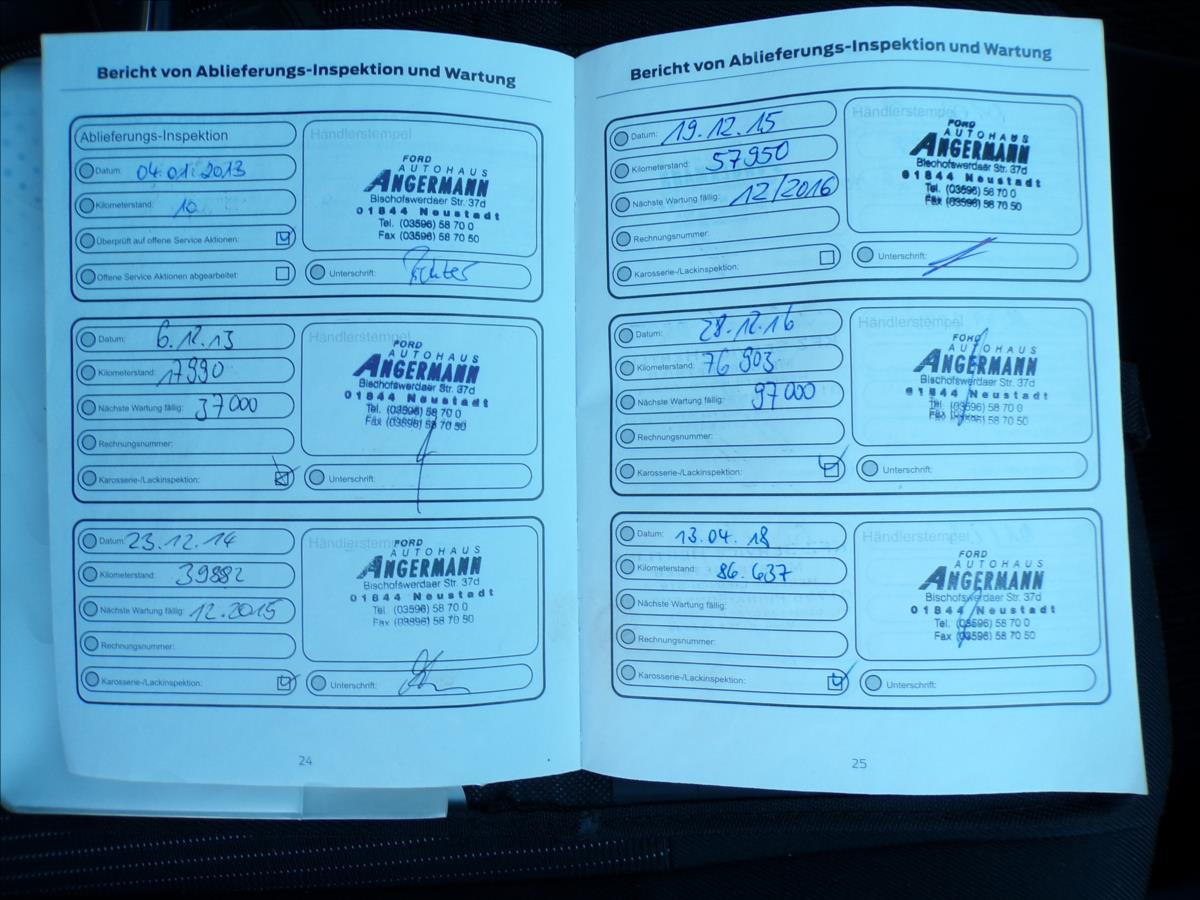 Bericht von Ablieferungs-Inspektion und Wartung
Ablieferungs-Inspektion
Datum: 04.01.2013
Kilometerstand: 10
Überprüft auf offene Service Aktionen:
Offene Service Aktionen abgearbeitet:
Händlerstempel
FORD
AUTOHAUS
ANGERMANN
Bischofswerdaer Str. 37d
01844 Neustadt
Tel. (03596) 58 70 0
Fax (03596) 58 70 50
Unterschrift: Richter
Datum: 6.12.13
Kilometerstand: 17990
Nächste Wartung fällig: 37000
Rechnungsnummer:
Karosserie-/Lackinspektion:
Händlerstempel
FORD
AUTOHAUS
ANGERMANN
Bischofswerdaer Str. 37d
01844 Neustadt
Tel. (03596) 58 70 0
Fax (03596) 58 70 50
Unterschrift:
Datum: 23.12.14
Kilometerstand: 39882
Nächste Wartung fällig: 12.2015
Rechnungsnummer:
Karosserie-/Lackinspektion:
Händlerstempel
FORD
AUTOHAUS
ANGERMANN
Bischofswerdaer Str. 37d
01844 Neustadt
Tel. (03596) 58 70 0
Fax (03596) 58 70 50
Unterschrift:
24
Bericht von Ablieferungs-Inspektion und Wartung
Datum: 19.12.15
Kilometerstand: 57950
Nächste Wartung fällig: 12/2016
Rechnungsnummer:
Karosserie-/Lackinspektion:
Händlerstempel
FORD
AUTOHAUS
ANGERMANN
Bischofswerdaer Str. 37d
01844 Neustadt
Tel. (03596) 58 70 0
Fax (03596) 58 70 50
Unterschrift:
Datum: 28.12.16
Kilometerstand: 76903
Nächste Wartung fällig: 97000
Rechnungsnummer:
Karosserie-/Lackinspektion:
Händlerstempel
FORD
AUTOHAUS
ANGERMANN
Bischofswerdaer Str. 37d
01844 Neustadt
Tel. (03596) 58 70 0
Fax (03596) 58 70 50
Unterschrift:
Datum: 13.04.18
Kilometerstand: 86.637
Nächste Wartung fällig:
Rechnungsnummer:
Karosserie-/Lackinspektion:
Händlerstempel
FORD
AUTOHAUS
ANGERMANN
Bischofswerdaer Str. 37d
01844 Neustadt
Tel. (03596) 58 70 0
Fax (03596) 58 70 50
Unterschrift:
25